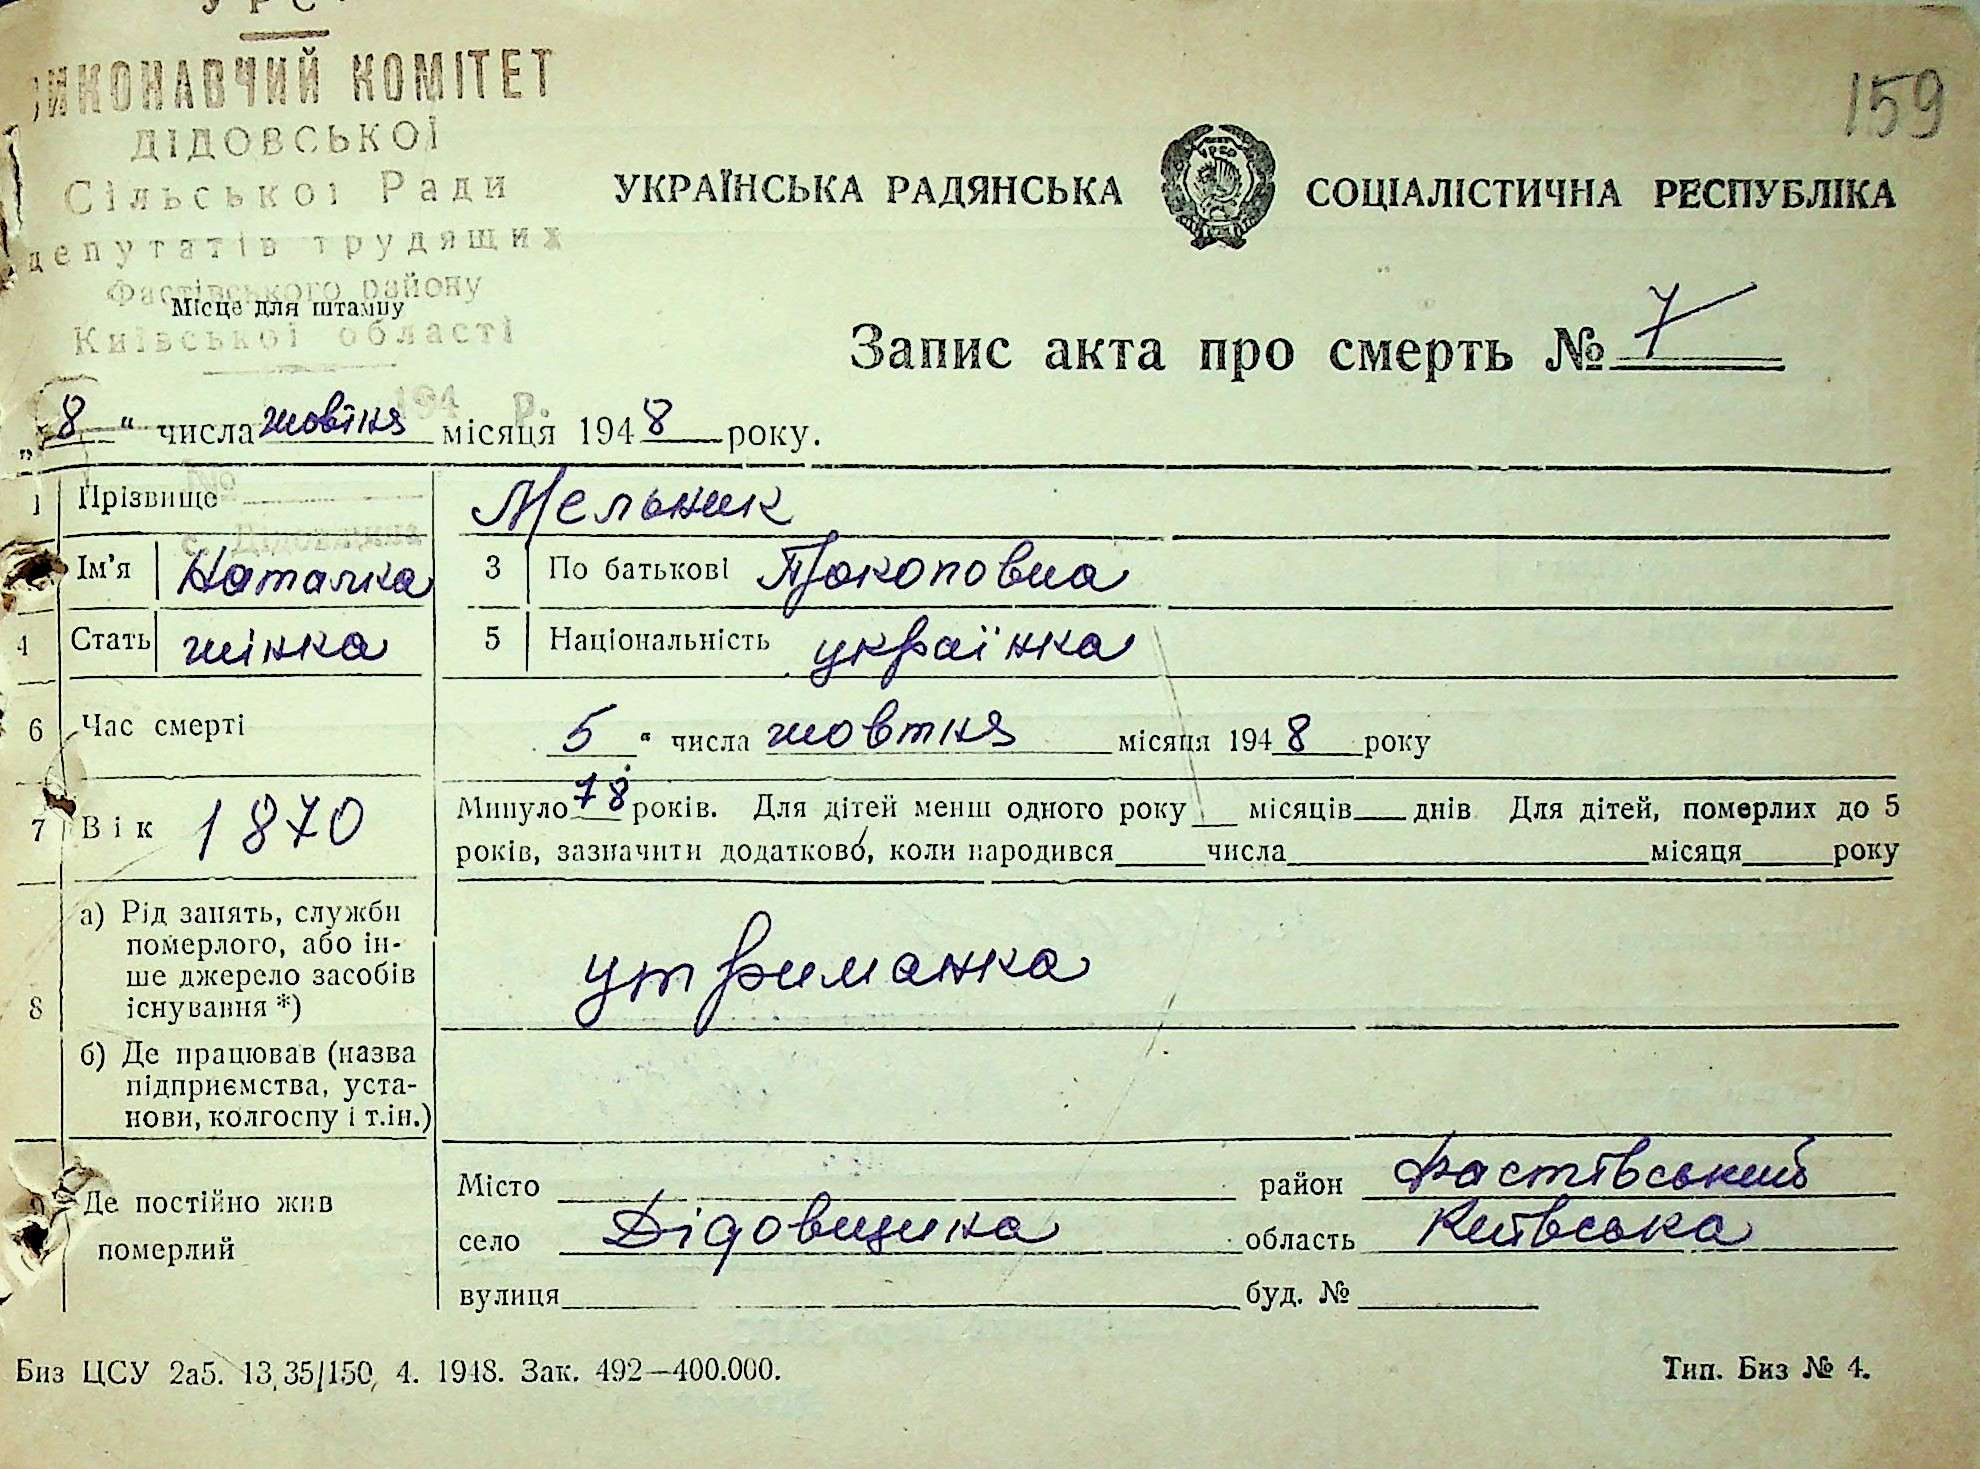 УРСР
ВИКОНАВЧИЙ КОМІТЕТ
ДІДОВСЬКОЇ
Сільської Ради
депутатів трудящих
Фастівського району
Місце для штампу
Київської області
194 р.
159
УКРАЇНСЬКА РАДЯНСЬКА СОЦІАЛІСТИЧНА РЕСПУБЛІКА
Запис акта про смерть № 7
„8“ числа жовтня місяця 1948 року.
№
с. Дідовщина
1 Прізвище Мельник
Ім'я Наталка 3 По батькові Прокоповна
4 Стать жінка 5 Національність українка
6 Час смерті 5 “ числа жовтня місяця 1948 року
7 Вік 1870 Минуло 78 років. Для дітей менш одного року місяців днів Для дітей, померлих до 5
років, зазначити додатково, коли народився числа місяця року
8 а) Рід занять, служби
померлого, або ін-
ше джерело засобів
існування *)
утриманка
б) Де працював (назва
підприємства, уста-
нови, колгоспу і т.ін.)
9 Де постійно жив
померлий
Місто район Фастівський
село Дідовщина область Київська
вулиця буд. №
Биз ЦСУ 2а5. 13,35/150, 4. 1948. Зак. 492—400.000. Тип. Биз № 4.